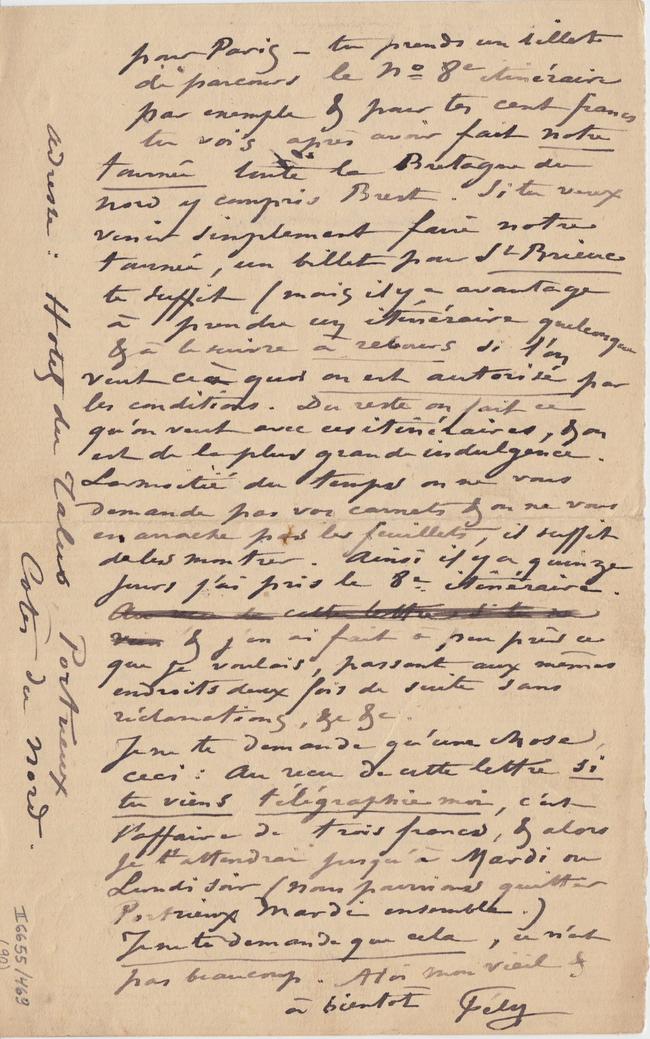 pour Paris — tu prends un billet
de parcours le No 8e itinéraire
par exemple & pour tes cent francs
tu vois après avoir fait notre
tournée toute la Bretagne du
nord y compris Brest. Si tu veux
venir simplement faire notre
tournée, un billet pour St Brieuc
te suffit (mais il y a avantage
à prendre un itinéraire quelconque
& à le suivre à rebours si l'on
veut ce à quoi on est autorisé par
les conditions. Du reste on fait ce
qu'on veut avec ces itinéraires, & on
est de la plus grande indulgence.
La moitié du temps on ne vous
demande pas vos carnets & on ne vous
en arrache pas les feuillets, il suffit
de les montrer. Ainsi il y a quinze
jours j'ai pris le 8e itinéraire.
Au reçu de cette lettre si tu
& j'en ai fait à peu près ce
que je voulais, passant aux mêmes
endroits deux fois de suite sans
réclamations, &c &c.
Je ne te demande qu'une chose,
ceci : Au reçu de cette lettre si
tu viens télégraphie moi, c'est
l'affaire de trois francs, & alors
je t'attendrai jusqu'à Mardi ou
Lundi soir (nous pourrions quitter
Portrieux Mardi ensemble.)
Je ne te demande que cela, ce n'est
pas beaucoup. A toi mon vieil &
à bientôt Fély
Adresse : Hotel du Talus Portrieux
Côtes du Nord.
II 6655/469
(90)